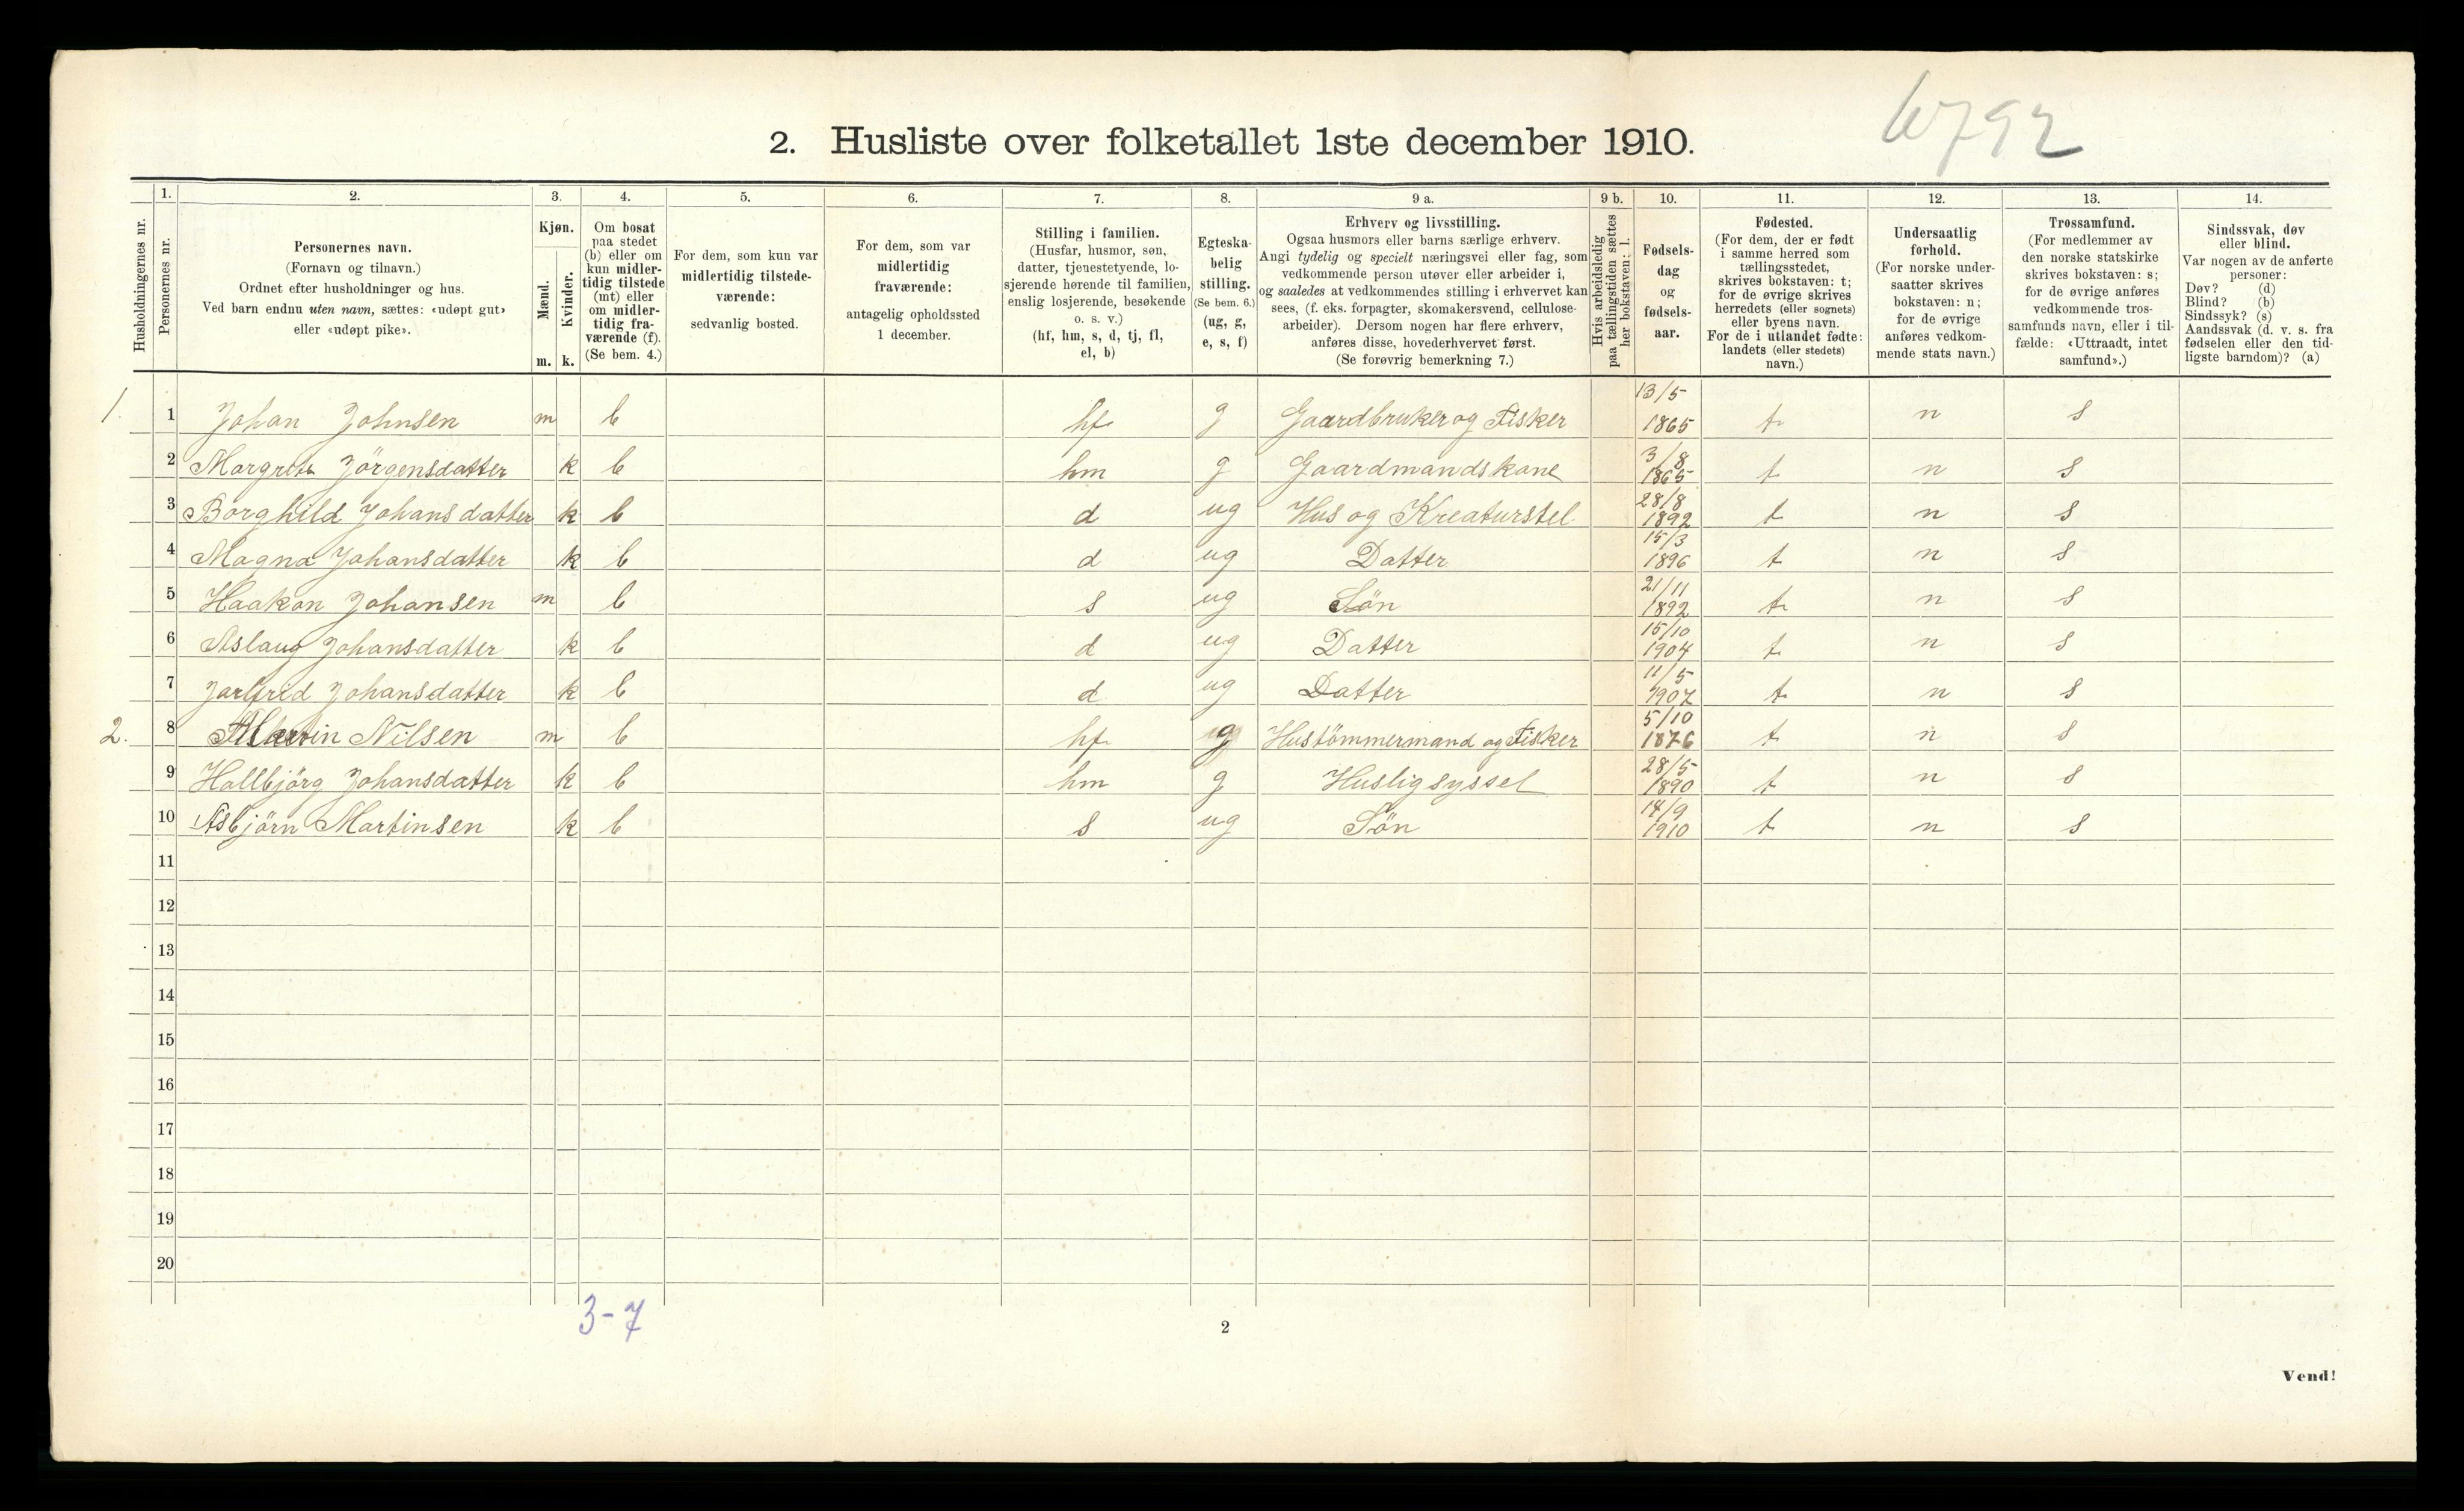 6792
2. Husliste over folketallet 1ste december 1910.
Husholdningernes nr.
1. Personernes nr.
2. Personernes navn. (Fornavn og tilnavn.) Ordnet efter husholdninger og hus. Ved barn endnu uten navn, sættes: «udøpt gut» eller «udøpt pike».
3. Kjøn. Mænd. m. Kvinder. k.
4. Om bosat paa stedet (b) eller om kun midlertidig tilstede (mt) eller om midlertidig fraværende (f). (Se bem. 4.)
5. For dem, som kun var midlertidig tilstedeværende: sedvanlig bosted.
6. For dem, som var midlertidig fraværende: antagelig opholdssted 1 december.
7. Stilling i familien. (Husfar, husmor, søn, datter, tjenestetyende, losjerende hørende til familien, enslig losjerende, besøkende o. s. v.) (hf, hm, s, d, tj, fl, el, b)
8. Egteskabelig stilling. (Se bem. 6.) (ug, g, e, s, f)
9 a. Erhverv og livsstilling. Ogsaa husmors eller barns særlige erhverv. Angi tydelig og specielt næringsvei eller fag, som vedkommende person utøver eller arbeider i, og saaledes at vedkommendes stilling i erhvervet kan sees, (f. eks. forpagter, skomakersvend, cellulosearbeider). Dersom nogen har flere erhverv, anføres disse, hovederhvervet først. (Se forøvrig bemerkning 7.)
9 b. Hvis arbeidsledig paa tællingstiden sættes her bokstaven: l.
10. Fødselsdag og fødselsaar.
11. Fødested. (For dem, der er født i samme herred som tællingsstedet, skrives bokstaven: t; for de øvrige skrives herredets (eller sognets) eller byens navn. For de i utlandet fødte: landets (eller stedets) navn.)
12. Undersaatlig forhold. (For norske undersaatter skrives bokstaven: n; for de øvrige anføres vedkommende stats navn.)
13. Trossamfund. (For medlemmer av den norske statskirke skrives bokstaven: s; for de øvrige anføres vedkommende trossamfunds navn, eller i tilfælde: «Uttraadt, intet samfund».)
14. Sindssvak, døv eller blind. Var nogen av de anførte personer: Døv? (d) Blind? (b) Sindssyk? (s) Aandssvak (d. v. s. fra fødselen eller den tidligste barndom)? (a)
1. 1 Johan Johnsen m b hf g Gaardbruker og Fisker 13/5 1865 t n s
2 Margrete Jörgensdatter k b hm g Gaardmandskone 3/8 1865 t n s
3 Borghild Johansdatter k b d ug Hus og Kreaturstel 28/8 1892 t n s
4 Magna Johansdatter k b d ug Datter 15/3 1896 t n s
5 Haakon Johansen m b s ug Sön 21/11 1892 t n s
6 Aslaug Johansdatter k b d ug Datter 15/10 1904 t n s
7 Jarfrid Johansdatter k b d ug Datter 11/5 1907 t n s
2. 8 Martin Nilsen m b hf g Hustömmermand og Fisker 5/10 1876 t n s
9 Hallbjörg Johansdatter k b hm g Huslig syssel 28/5 1890 t n s
10 Asbjörn Martinsen k b s ug Sön 14/9 1910 t n s
11
12
13
14
15
16
17
18
19
20
3-7
2
Vend!